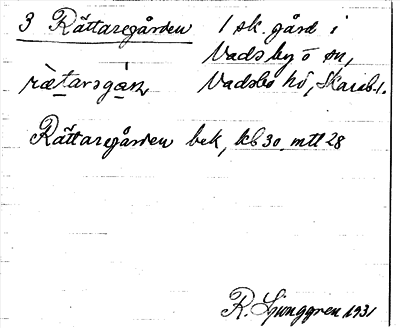 3 Rättaregården 1 sk. gård i
Vadsbyö sn,
rä̀tarsgán, Vadsbo hd, Skarab.l.
Rättaregården bek, kb 30. mtl 28
R. Ljunggren 1931